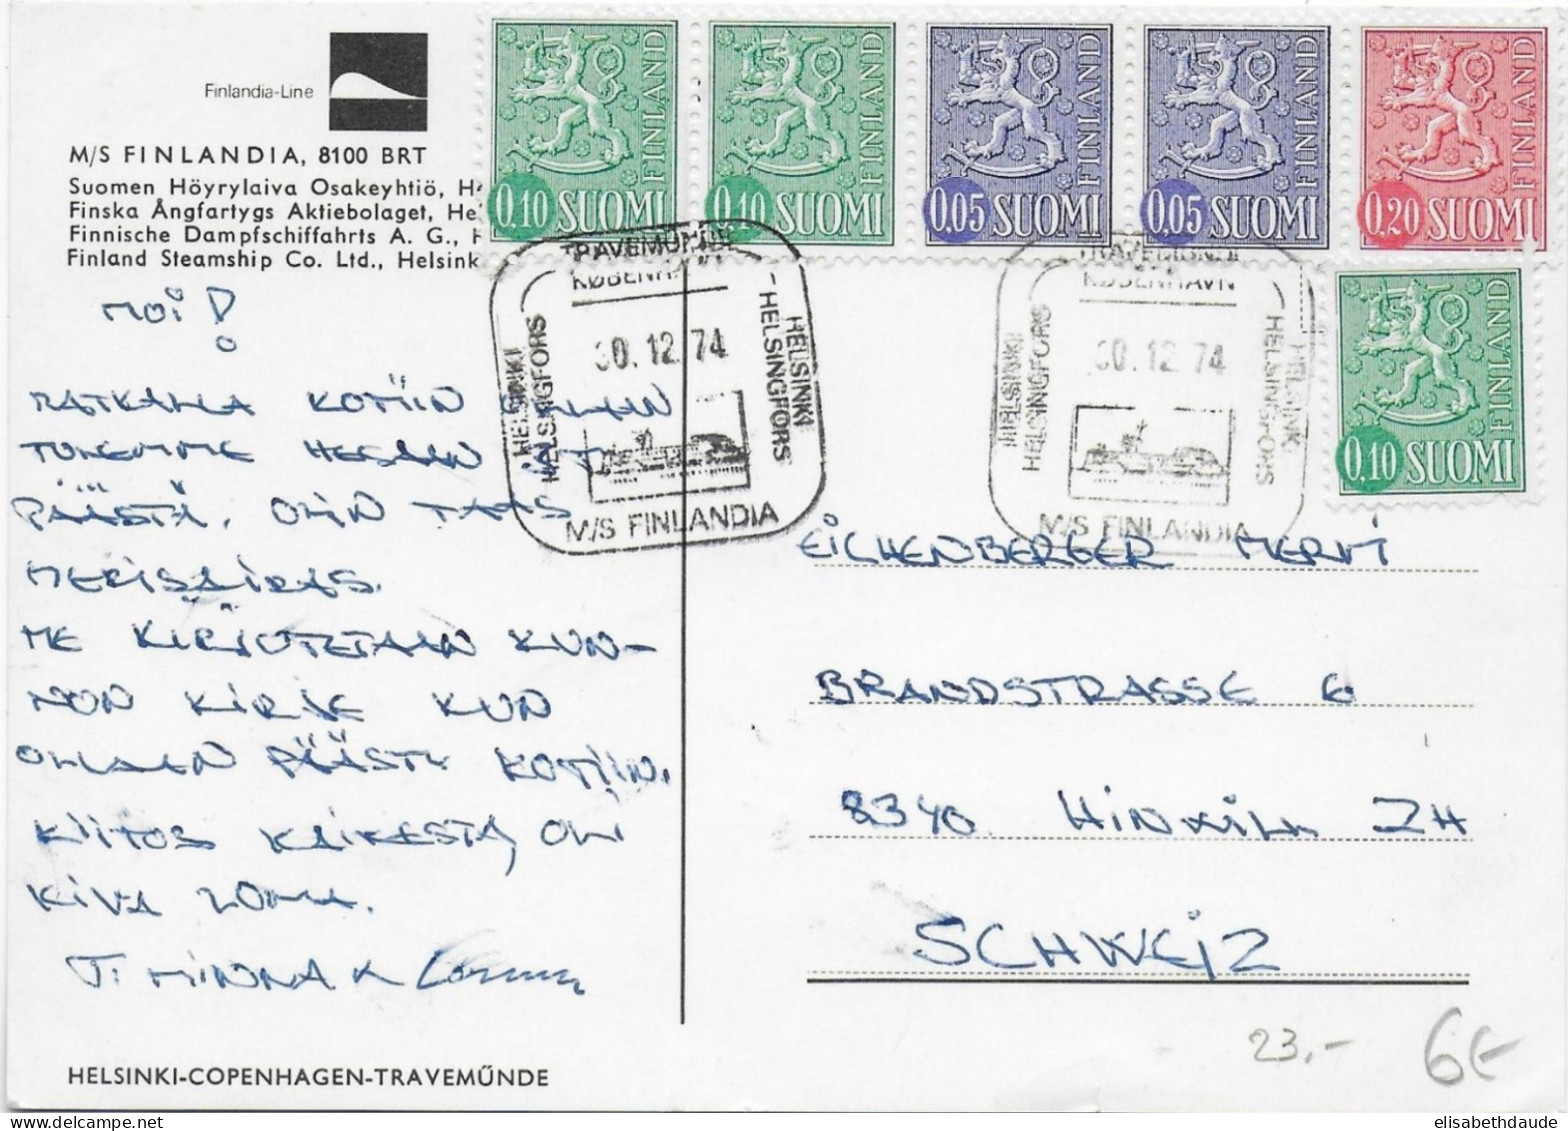 Finlandia-Line
M/S FINLANDIA, 8100 BRT
Suomen Höyrylaiva Osakeyhtiö, H
Finska Ångfartygs Aktiebolaget, He
Finnische Dampfschiffahrts A. G., H
Finland Steamship Co. Ltd., Helsink
0.10 SUOMI FINLAND
0.10 SUOMI FINLAND
0.05 SUOMI FINLAND
0.05 SUOMI FINLAND
0.20 SUOMI FINLAND
0.10 SUOMI FINLAND
TRAVEMÜNDE
KØBENHAVN
HELSINKI
HELSINGFORS
30.12.74
HELSINKI
HELSINGFORS
M/S FINLANDIA
TRAVEMÜNDE
KØBENHAVN
HELSINKI
HELSINGFORS
30.12.74
HELSINKI
HELSINGFORS
M/S FINLANDIA
MOI!
MATKALLA KOTIIN
PÄÄSTÄ, OLIN TAAS
MERISAIRAS.
ME KIRJOTETAAN KUN-
NON KIRJE KUN
OLLAAN PÄÄSTY KOTIIN.
KIITOS KAIKESTA, OLI
KIVA LOMA.
T: MINNA K
EICHENBERGER MERVI
BRANDSTRASSE 6
8340 HINWIL ZH
SCHWEIZ
HELSINKI-COPENHAGEN-TRAVEMÜNDE
23,-
6€
elisabethdaude